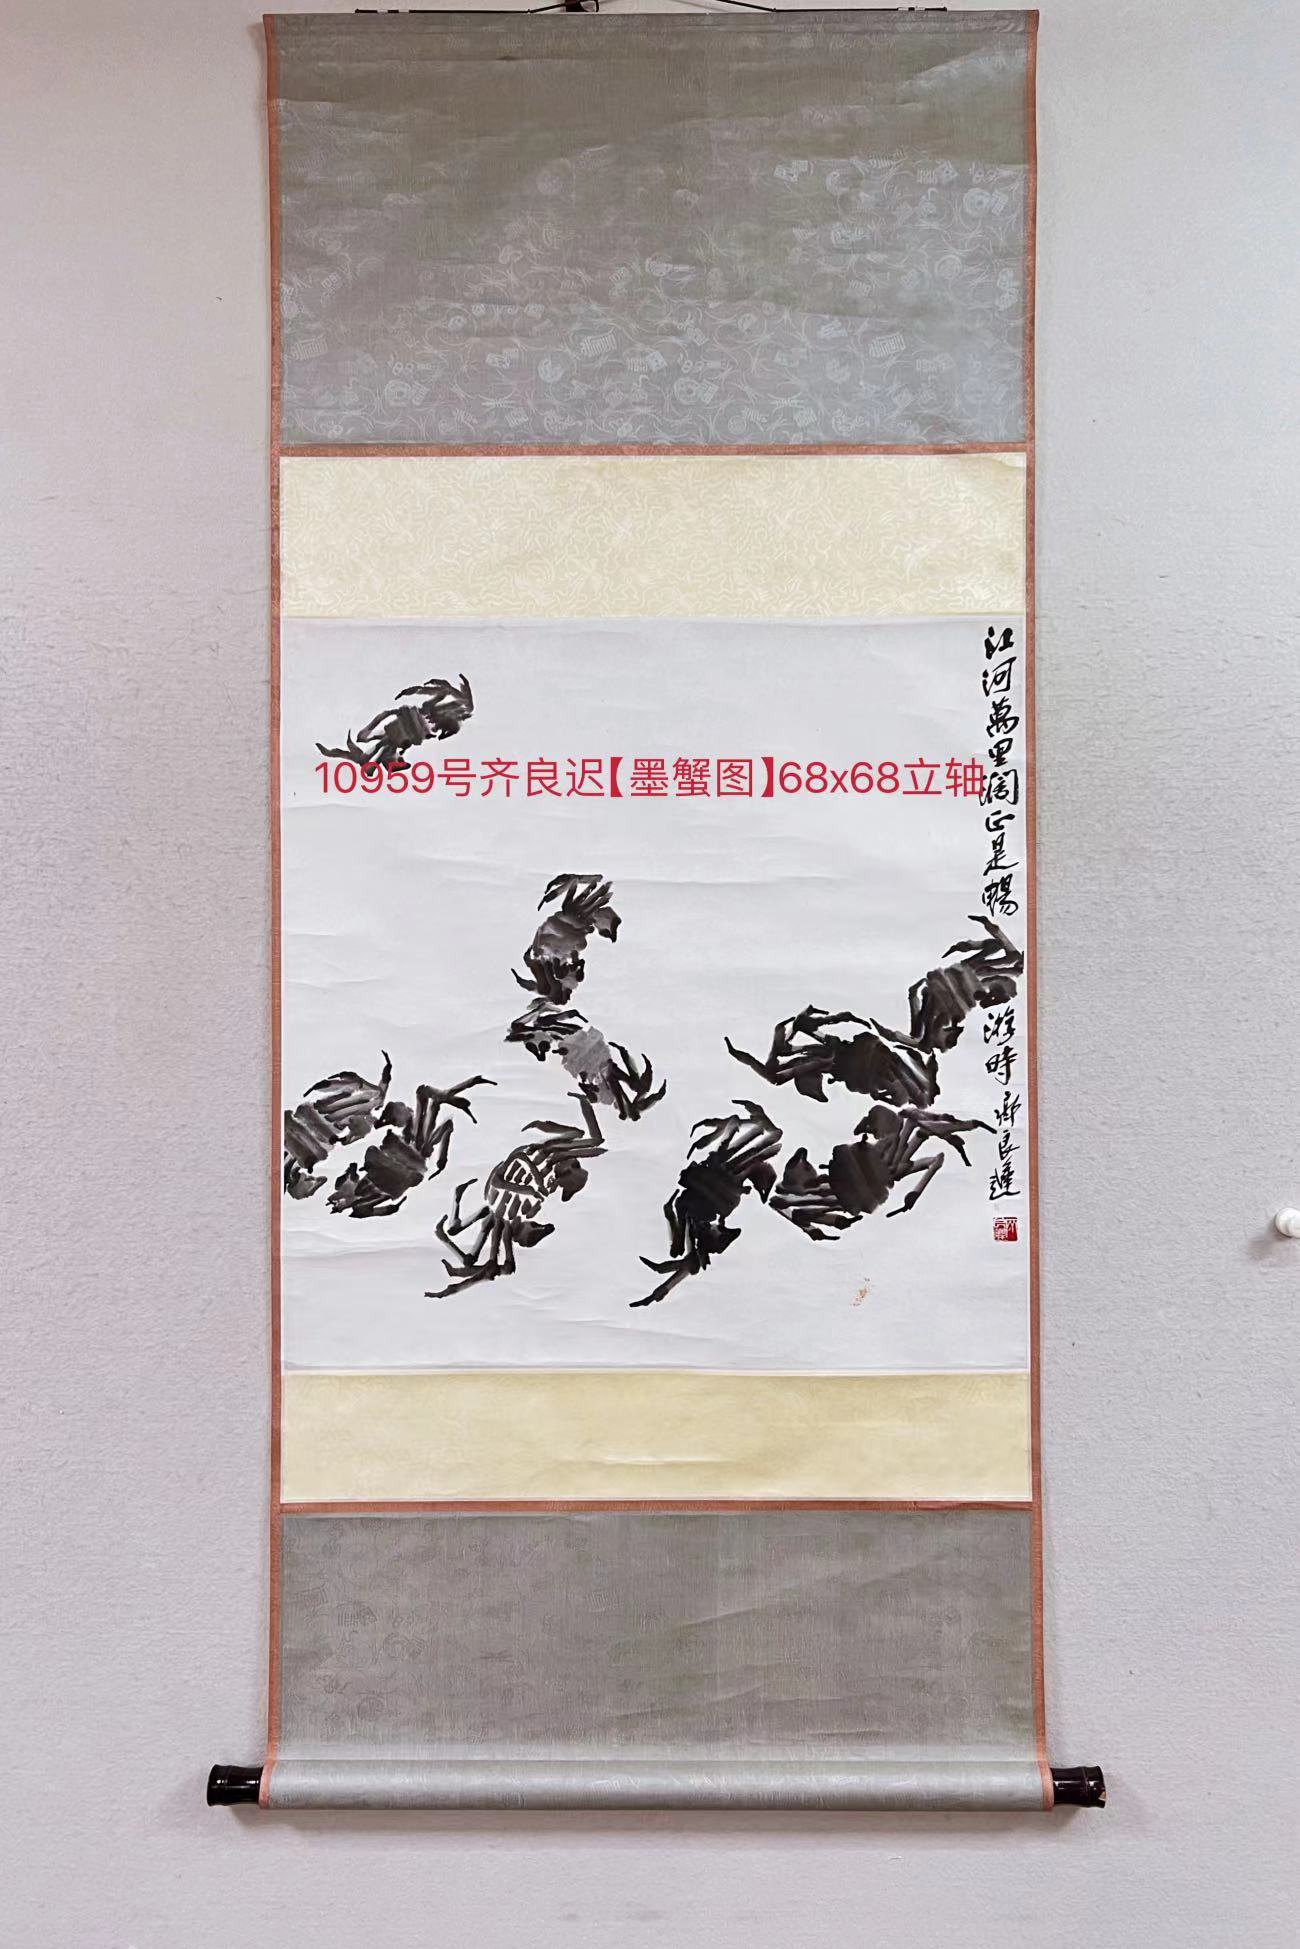 10959号齐良迟【墨蟹图】68x68立轴
江河萬里阔正是暢
游時 齊良遲